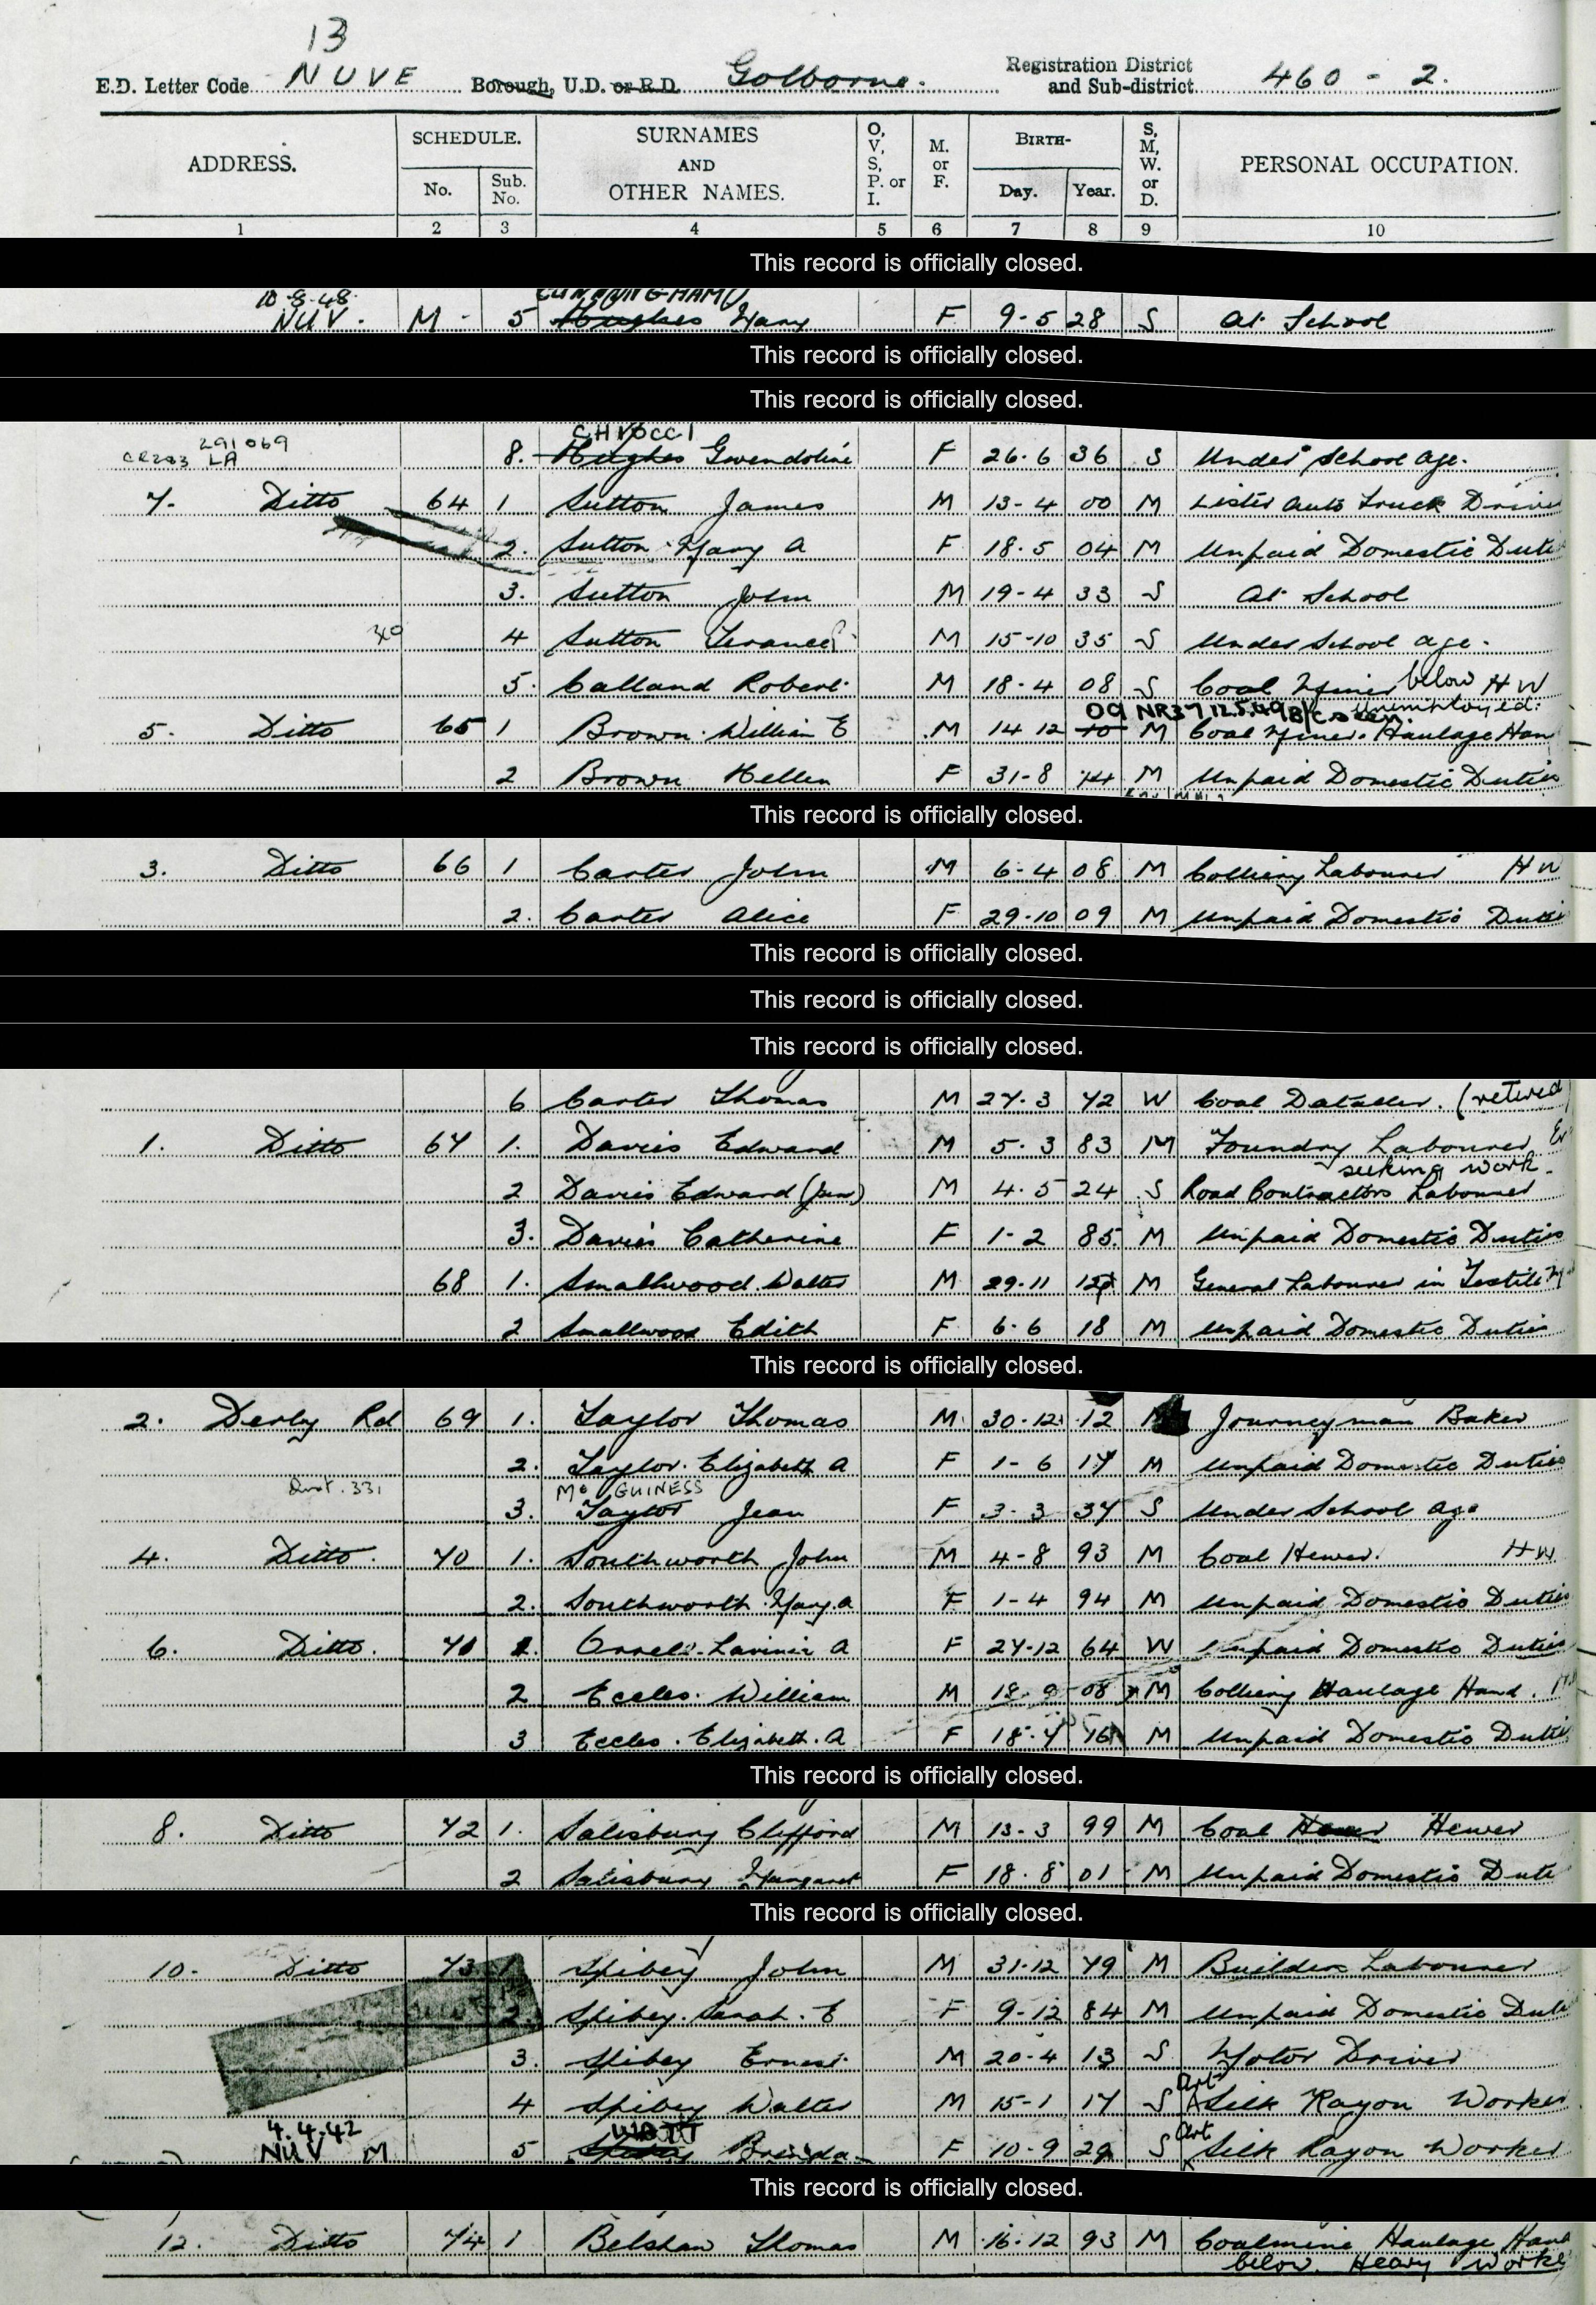 13
E.D. Letter Code NUVE Borough, U.D. or R.D. Golborne. Registration District and Sub-district 460 - 2.
ADDRESS. SCHEDULE. No. Sub. No. SURNAMES AND OTHER NAMES. O, V, S, P. or I. M. or F. BIRTH- Day. Year. S, M, W. or D. PERSONAL OCCUPATION.
1 2 3 4 5 6 7 8 9 10
This record is officially closed.
10-8-48 CUNNINGHAM
NUV. M - 5 Hughes Mary F 9-5 28 S At School
This record is officially closed.
This record is officially closed.
291069
CR283 LA 8. Hughes Gwendoline F 26.6 36 S Under School age.
7. Ditto 64 1 Sutton James M 13-4 00 M Lister Auto Truck Driver
2. Sutton Mary A F 18.5 04 M Unpaid Domestic Duti
3. Sutton John M 19-4 33 S At School
4 Sutton M 15-10 35 S Under School age.
5. Calland Robert M 18-4 08 S Coal Miner below H W
09 NR37 12.5.49 B/C seen. Unemployed.
5. Ditto 65 1 Brown William E M 14 12 10 M Coal Miner. Haulage Han
2 Brown Hellen F 31-8 14 M Unpaid Domestic Duties
This record is officially closed.
3. Ditto 66 1 Carter John M 6-4 08 M Colliery Labourer H W
2. Carter Alice F 29-10 09 M Unpaid Domestic Duti
This record is officially closed.
This record is officially closed.
This record is officially closed.
6 Carter Thomas M 27.3 72 W Coal Dataller. (retired
1. Ditto 67 1. Davies Edward M 5.3 83 M Foundry Labourer
seeking work.
2 Davies Edward (Jun) M 4.5 24 S Road Contractors Labourer
3. Davies Catherine F 1-2 85 M Unpaid Domestic Duties
68 1. Smallwood Walter M 29-11 M General Labourer in Textile
2 Smallwood Edith F 6.6 18 M Unpaid Domestic Duties
This record is officially closed.
2. Derby Rd 69 1. Taylor Thomas M 30-12 12 M Journeyman Baker
2. Taylor Elizabeth A F 1-6 17 M Unpaid Domestic Duties
Mc GUINESS
3. Taylor Jean F 3-3 37 S Under School age
4. Ditto. 70 1. Southworth John M 4-8 93 M Coal Hewer. H W
2. Southworth Mary A F 1-4 94 M Unpaid Domestic Duties
6. Ditto. 71 1. Orrell Lavinia A F 27-12 64 W Unpaid Domestic Duties
2 Eccles William M 18 9 08 M Colliery Haulage Hand.
3 Eccles Elizabeth A F 18.7 16 M Unpaid Domestic Duti
This record is officially closed.
8. Ditto 72 1. Salisbury Clifford M 13-3 99 M Coal Hewer Hewer
2 Salisbury Margaret F 18.8 01 M Unpaid Domestic Dute
This record is officially closed.
10. Ditto 73 1 Spibey John M 31-12 79 M Builders Labourer
2. Spibey Sarah. E F 9-12 84 M Unpaid Domestic Duti
3. Spibey Ernest M 20-4 13 S Motor Driver
4 Spibey Walter M 15-1 17 S Art Silk Rayon Worker
4.4.42
NUV M 5 Spibey Brenda F 10-9 S Art Silk Rayon Worker
This record is officially closed.
12. Ditto 74 1 Belshaw Thomas M 16.12 93 M Coalmine Haulage Hand
below. Heavy Worke